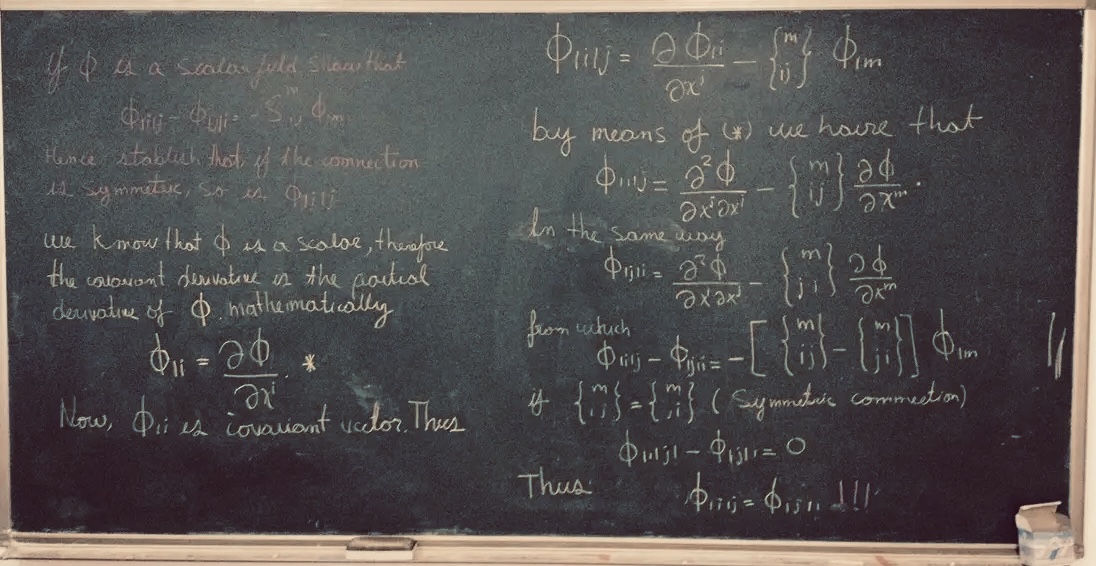 If ϕ is a scalar field show that
ϕ|i|j - ϕ|j|i = - S^m_ij ϕ|m
Hence stablish that, if the connection
is symmetric, so is ϕ|i|j
we know that ϕ is a scalar, therefore
the covariant derivative is the partial
derivative of ϕ. mathematically
ϕ|i = ∂ϕ/∂x^i. *
Now, ϕ|i is covariant vector. Thus
ϕ|i|j = ∂ϕ|i/∂x^j - {m ij} ϕ|m
by means of (*) we have that
ϕ|i|j = ∂²ϕ/∂x^j∂x^i - {m ij} ∂ϕ/∂x^m.
In the same way
ϕ|j|i = ∂²ϕ/∂x^i∂x^j - {m ji} ∂ϕ/∂x^m
from which
ϕ|i|j - ϕ|j|i = -[{m ij} - {m ji}] ϕ|m //
if {m ij} = {m ji} (Symmetric connection)
ϕ|i|j| - ϕ|j|i = 0
Thus: ϕ|i|j = ϕ|j|i !!!